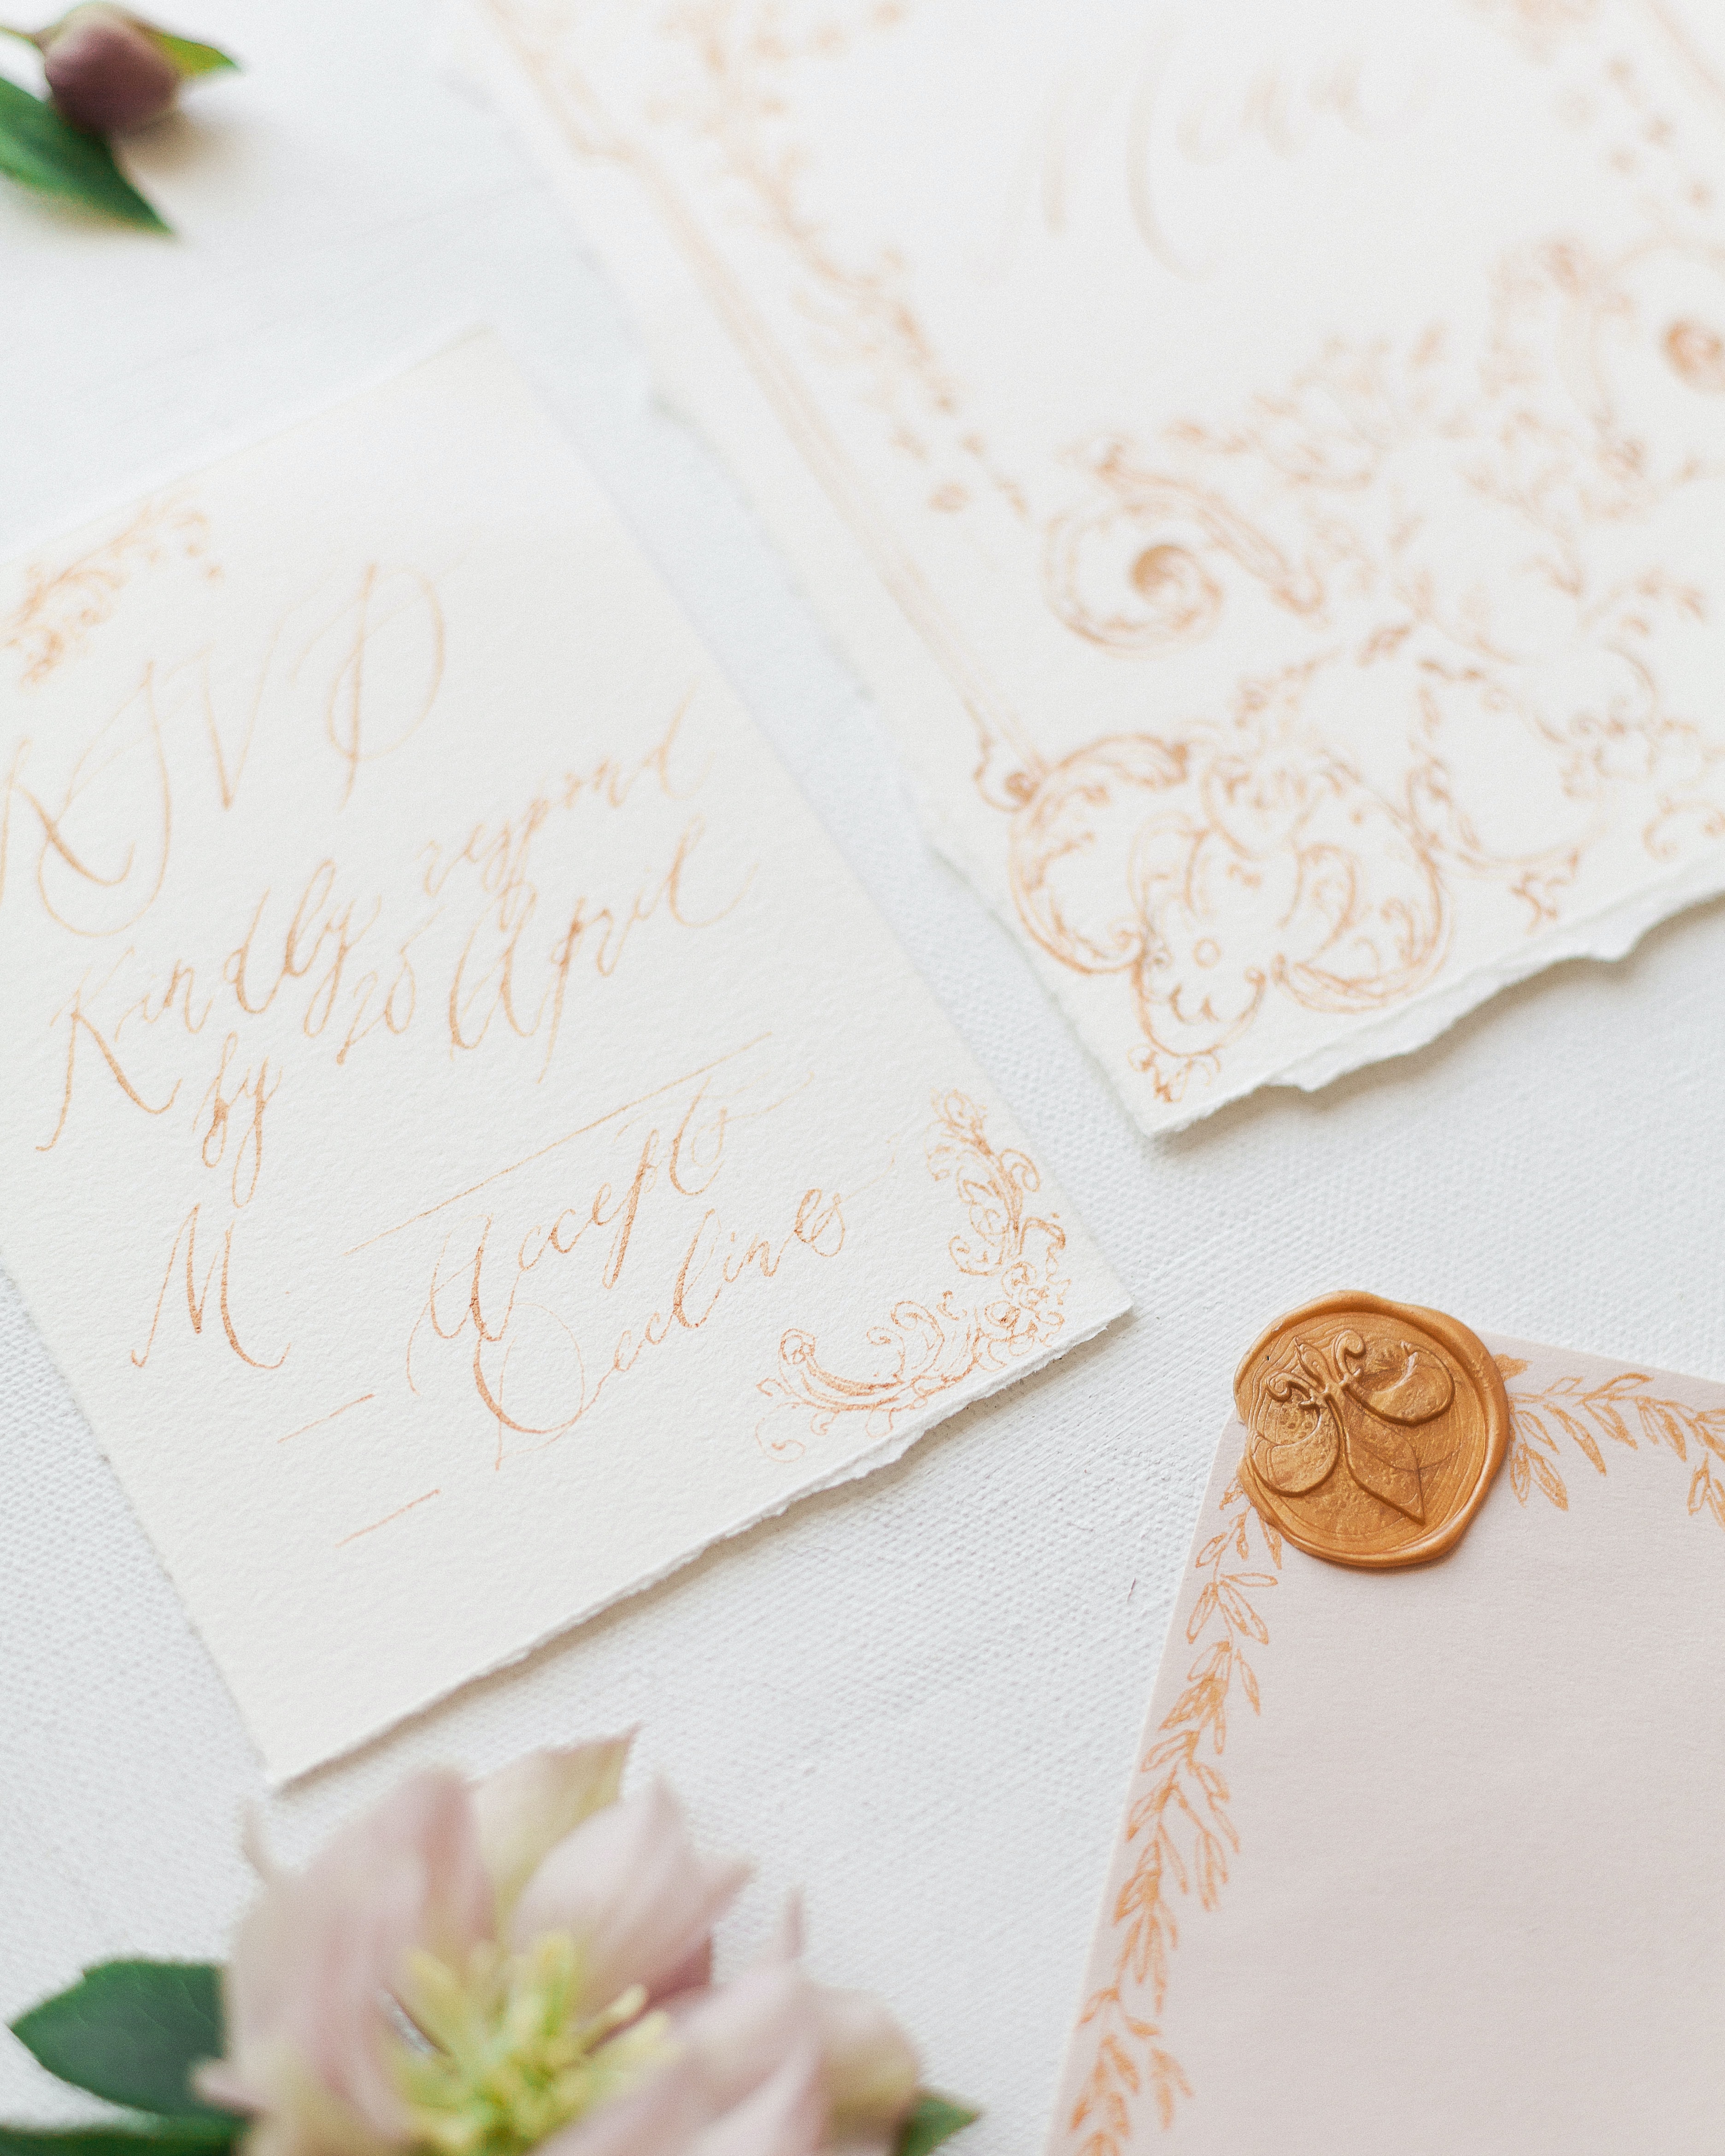 RSVP
Kindly respond
by 20 April
M
Accepts
Declines